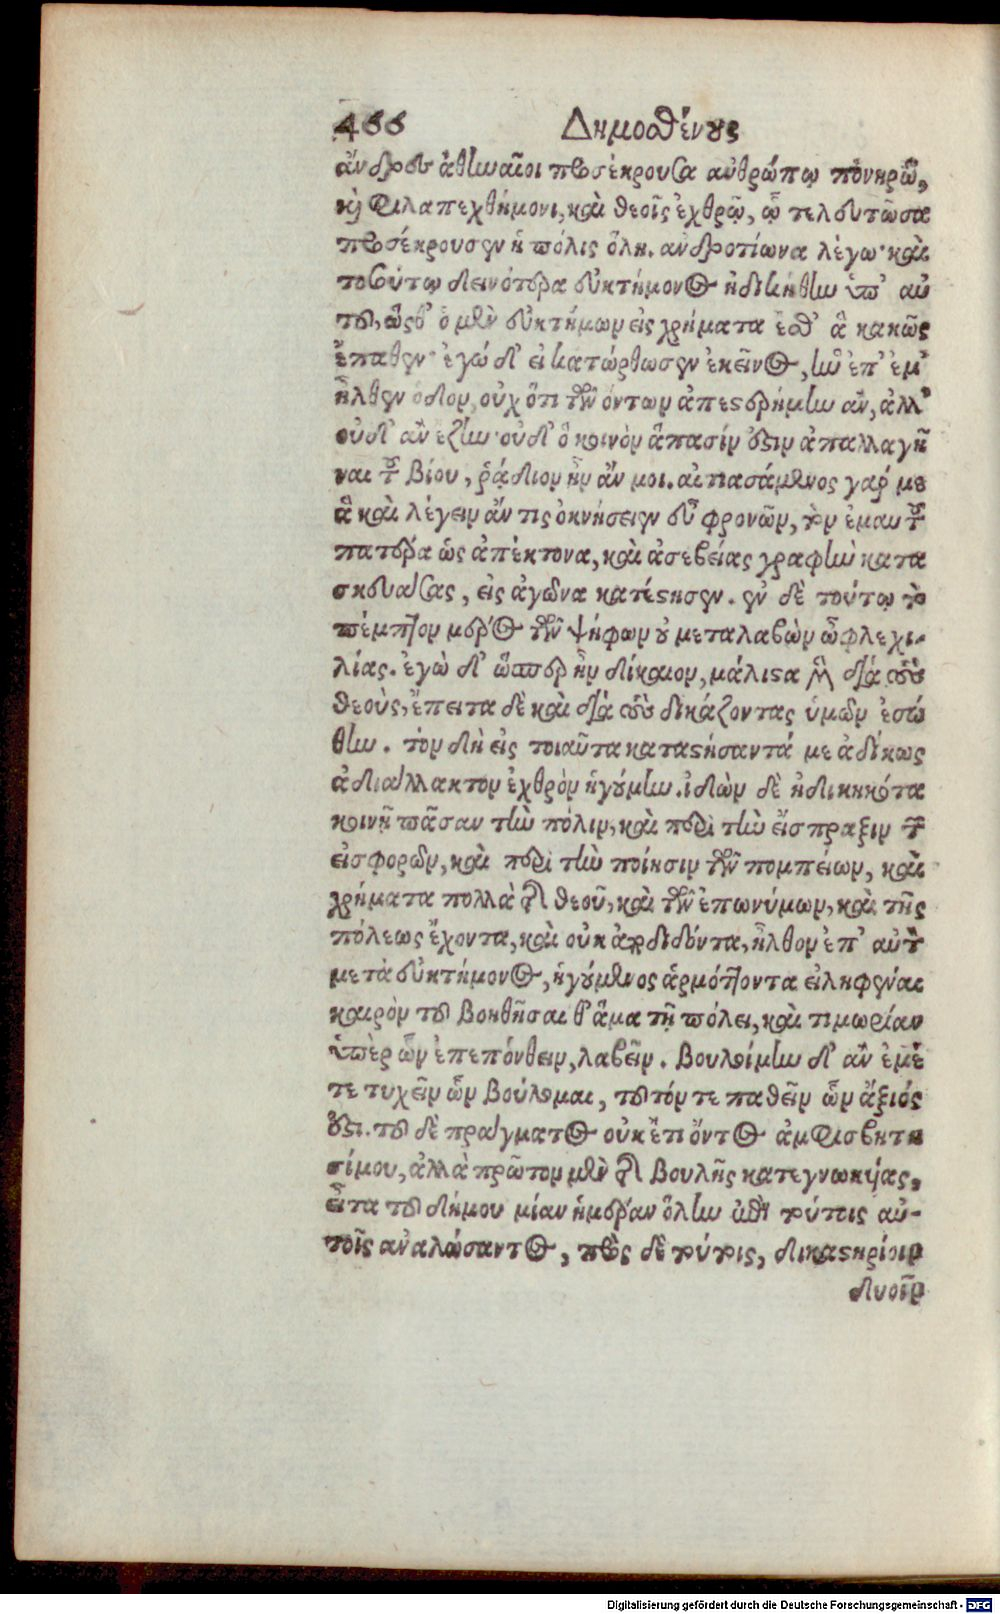 466 Δημοσθένους
ἄνδρες ἀθηναῖοι προσέκρουσα ἀνθρώπῳ πονηρῷ,
καὶ φιλαπεχθήμονι, καὶ θεοῖς ἐχθρῷ, ᾧ τελευτῶσα
προσέκρουσεν ἡ πόλις ὅλη. ἀνδροτίωνα λέγω· καὶ
τοσούτῳ δεινότερα εὐκτήμονος ἠδικήθην ὑπ' αὐ
τοῦ, ὥσθ' ὁ μὲν εὐκτήμων εἰς χρήματα ἔσθ' ἃ κακῶς
ἔπαθεν· ἐγώ δ' εἰ κατώρθωσεν ἐκεῖνος, ἣν ἐπ' ἐμ'
ἦλθεν ὁδὸν, οὐχ ὅτι τῶν ὄντων ἀπεστερήμην ἂν, ἀλλ'
οὐδ' ἂν ἔζην· οὐδ' ὃ κοινὸν ἅπασίν ἐστιν ἀπαλλαγῆ
ναι τοῦ βίου, ῥᾴδιον ἦν ἄν μοι. αἰτιασάμενος γάρ με
ἃ καὶ λέγειν ἄν τις ὀκνήσειεν εὖ φρονῶν, τὸν ἐμαυτοῦ
πατέρα ὡς ἀπέκτονα, καὶ ἀσεβείας γραφὴν κατα
σκευάσας, εἰς ἀγῶνα κατέστησεν. ἐν δὲ τούτῳ τὸ
πέμπτον μέρος τῶν ψήφων οὐ μεταλαβὼν ὦφλε χι-
λίας. ἐγὼ δ' ὥσπερ ἦν δίκαιον, μάλιστα μὲν διὰ τοὺς
θεοὺς, ἔπειτα δὲ καὶ διὰ τοὺς δικάζοντας ὑμῶν ἐσώ
θην. τὸν δὴ εἰς τοιαῦτα καταστήσαντά με ἀδίκως
ἀδιάλλακτον ἐχθρὸν ἡγούμην. ἰδὼν δὲ ἠδικηκότα
κοινῇ πᾶσαν τὴν πόλιν, καὶ περὶ τὴν εἴσπραξιν τῶν
εἰσφορῶν, καὶ περὶ τὴν ποίησιν τῶν πομπείων, καὶ
χρήματα πολλὰ τῆς θεοῦ, καὶ τῶν ἐπωνύμων, καὶ τῆς
πόλεως ἔχοντα, καὶ οὐκ ἀποδιδόντα, ἦλθον ἐπ' αὐτὸν
μετὰ εὐκτήμονος, ἡγούμενος ἁρμόττοντα εἰληφέναι
καιρὸν τοῦ βοηθῆσαι θ' ἅμα τῇ πόλει, καὶ τιμωρίαν
ὑπὲρ ὧν ἐπεπόνθειν, λαβεῖν. βουλοίμην δ' ἂν ἐμέ
τε τυχεῖν ὧν βούλομαι, τοῦτόν τε παθεῖν ὧν ἄξιός
ἐστι. τοῦ δὲ πράγματος οὐκ ἔτι ὄντος ἀμφισβητη
σίμου, ἀλλὰ πρῶτον μὲν τῆς βουλῆς κατεγνωκυίας,
εἶτα τοῦ δήμου μίαν ἡμέραν ὅλην ἐπὶ τούτοις αὐ-
τοῖς ἀναλώσαντος, πρὸς δὲ τούτοις, δικαστηρίοιν
δυοῖν
Digitalisierung gefördert durch die Deutsche Forschungsgemeinschaft - DFG